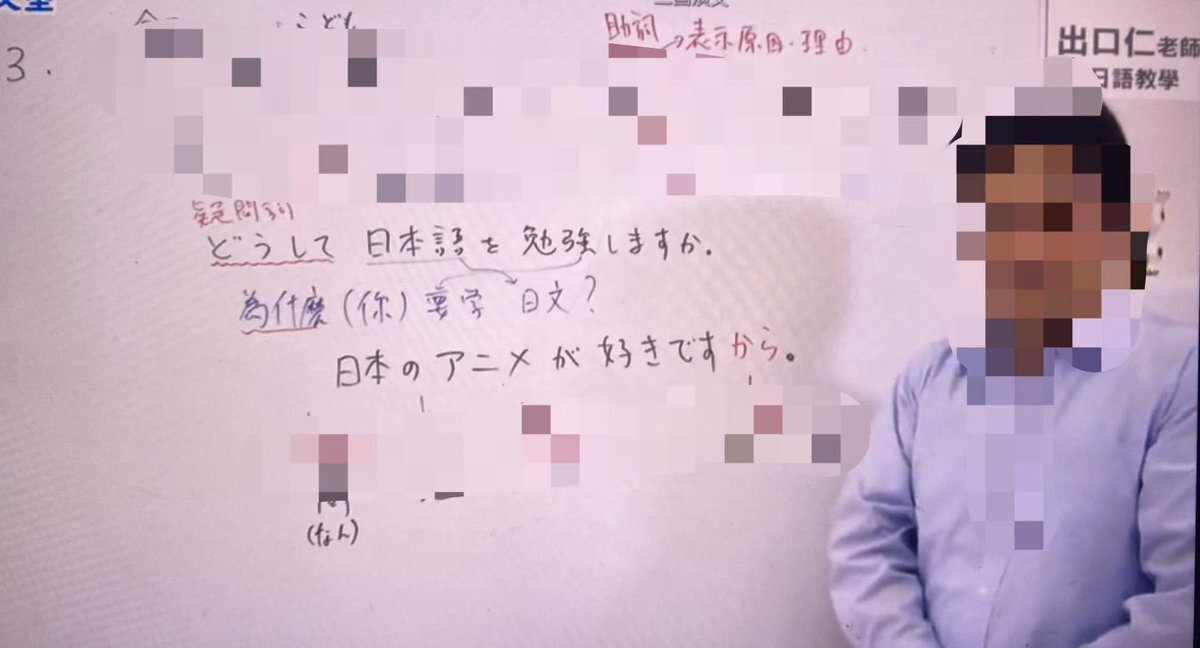 こども
助詞→表示原因・理由
出口仁老師
日語教學
3.
疑問詞
どうして 日本語を勉強しますか.
為什麼(你)要学 日文?
日本のアニメが好きですから。
(なん)